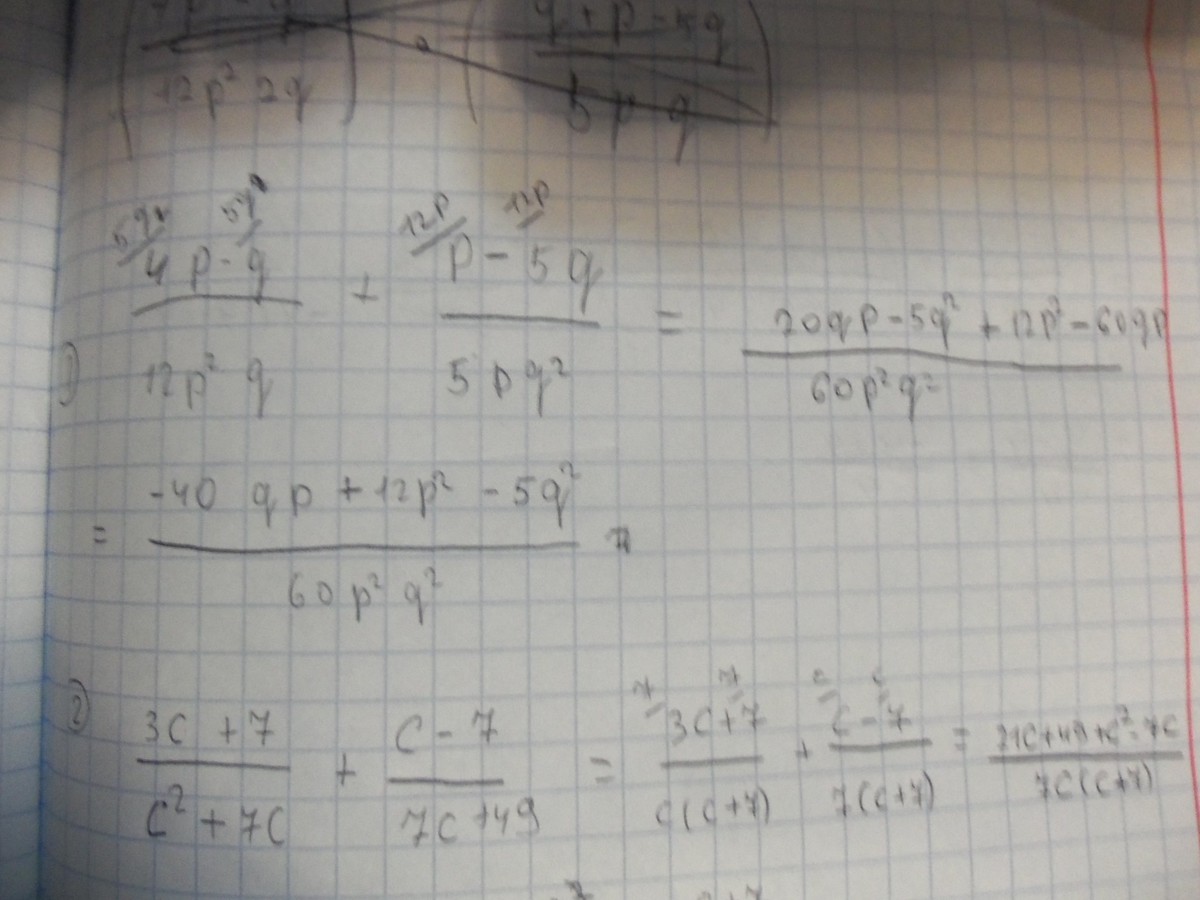 12p² 2q 5 p q
5q 5q 12p 12p
1) (4p-q)/(12p² q) + (p-5q)/(5pq²) = (20qp-5q²+12p²-60qp)/(60p²q²)
= (-40 qp + 12p² - 5q²)/(60 p² q²)
7 7 c c
2) (3c+7)/(c²+7c) + (c-7)/(7c+49) = (3c+7)/(c(c+7)) + (c-7)/(7(c+7)) = (21c+49+c²-7c)/(7c(c+7))